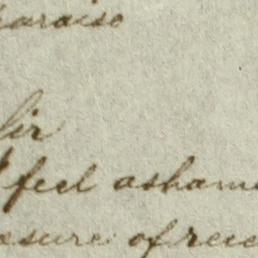 paraiso
Sir
I feel asham
esure of rece